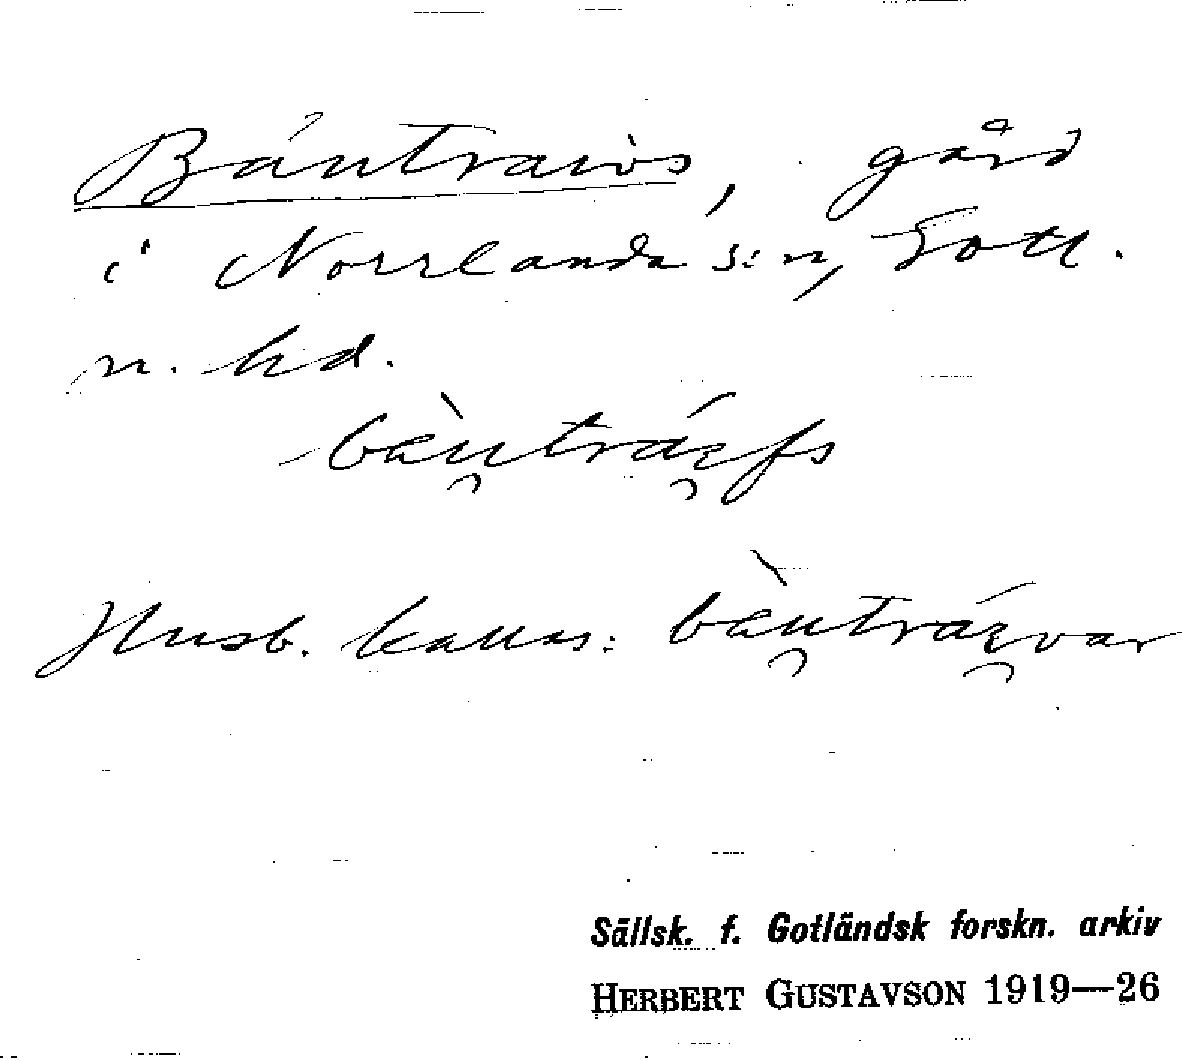 Bántraivs, gård
i Norrlanda s:n, Gotl.
n. hd.
bàu̯tráefs
Husb. kallas: bàu̯tráevar
Sällsk. f. Gotländsk forskn. arkiv
HERBERT GUSTAVSON 1919—26